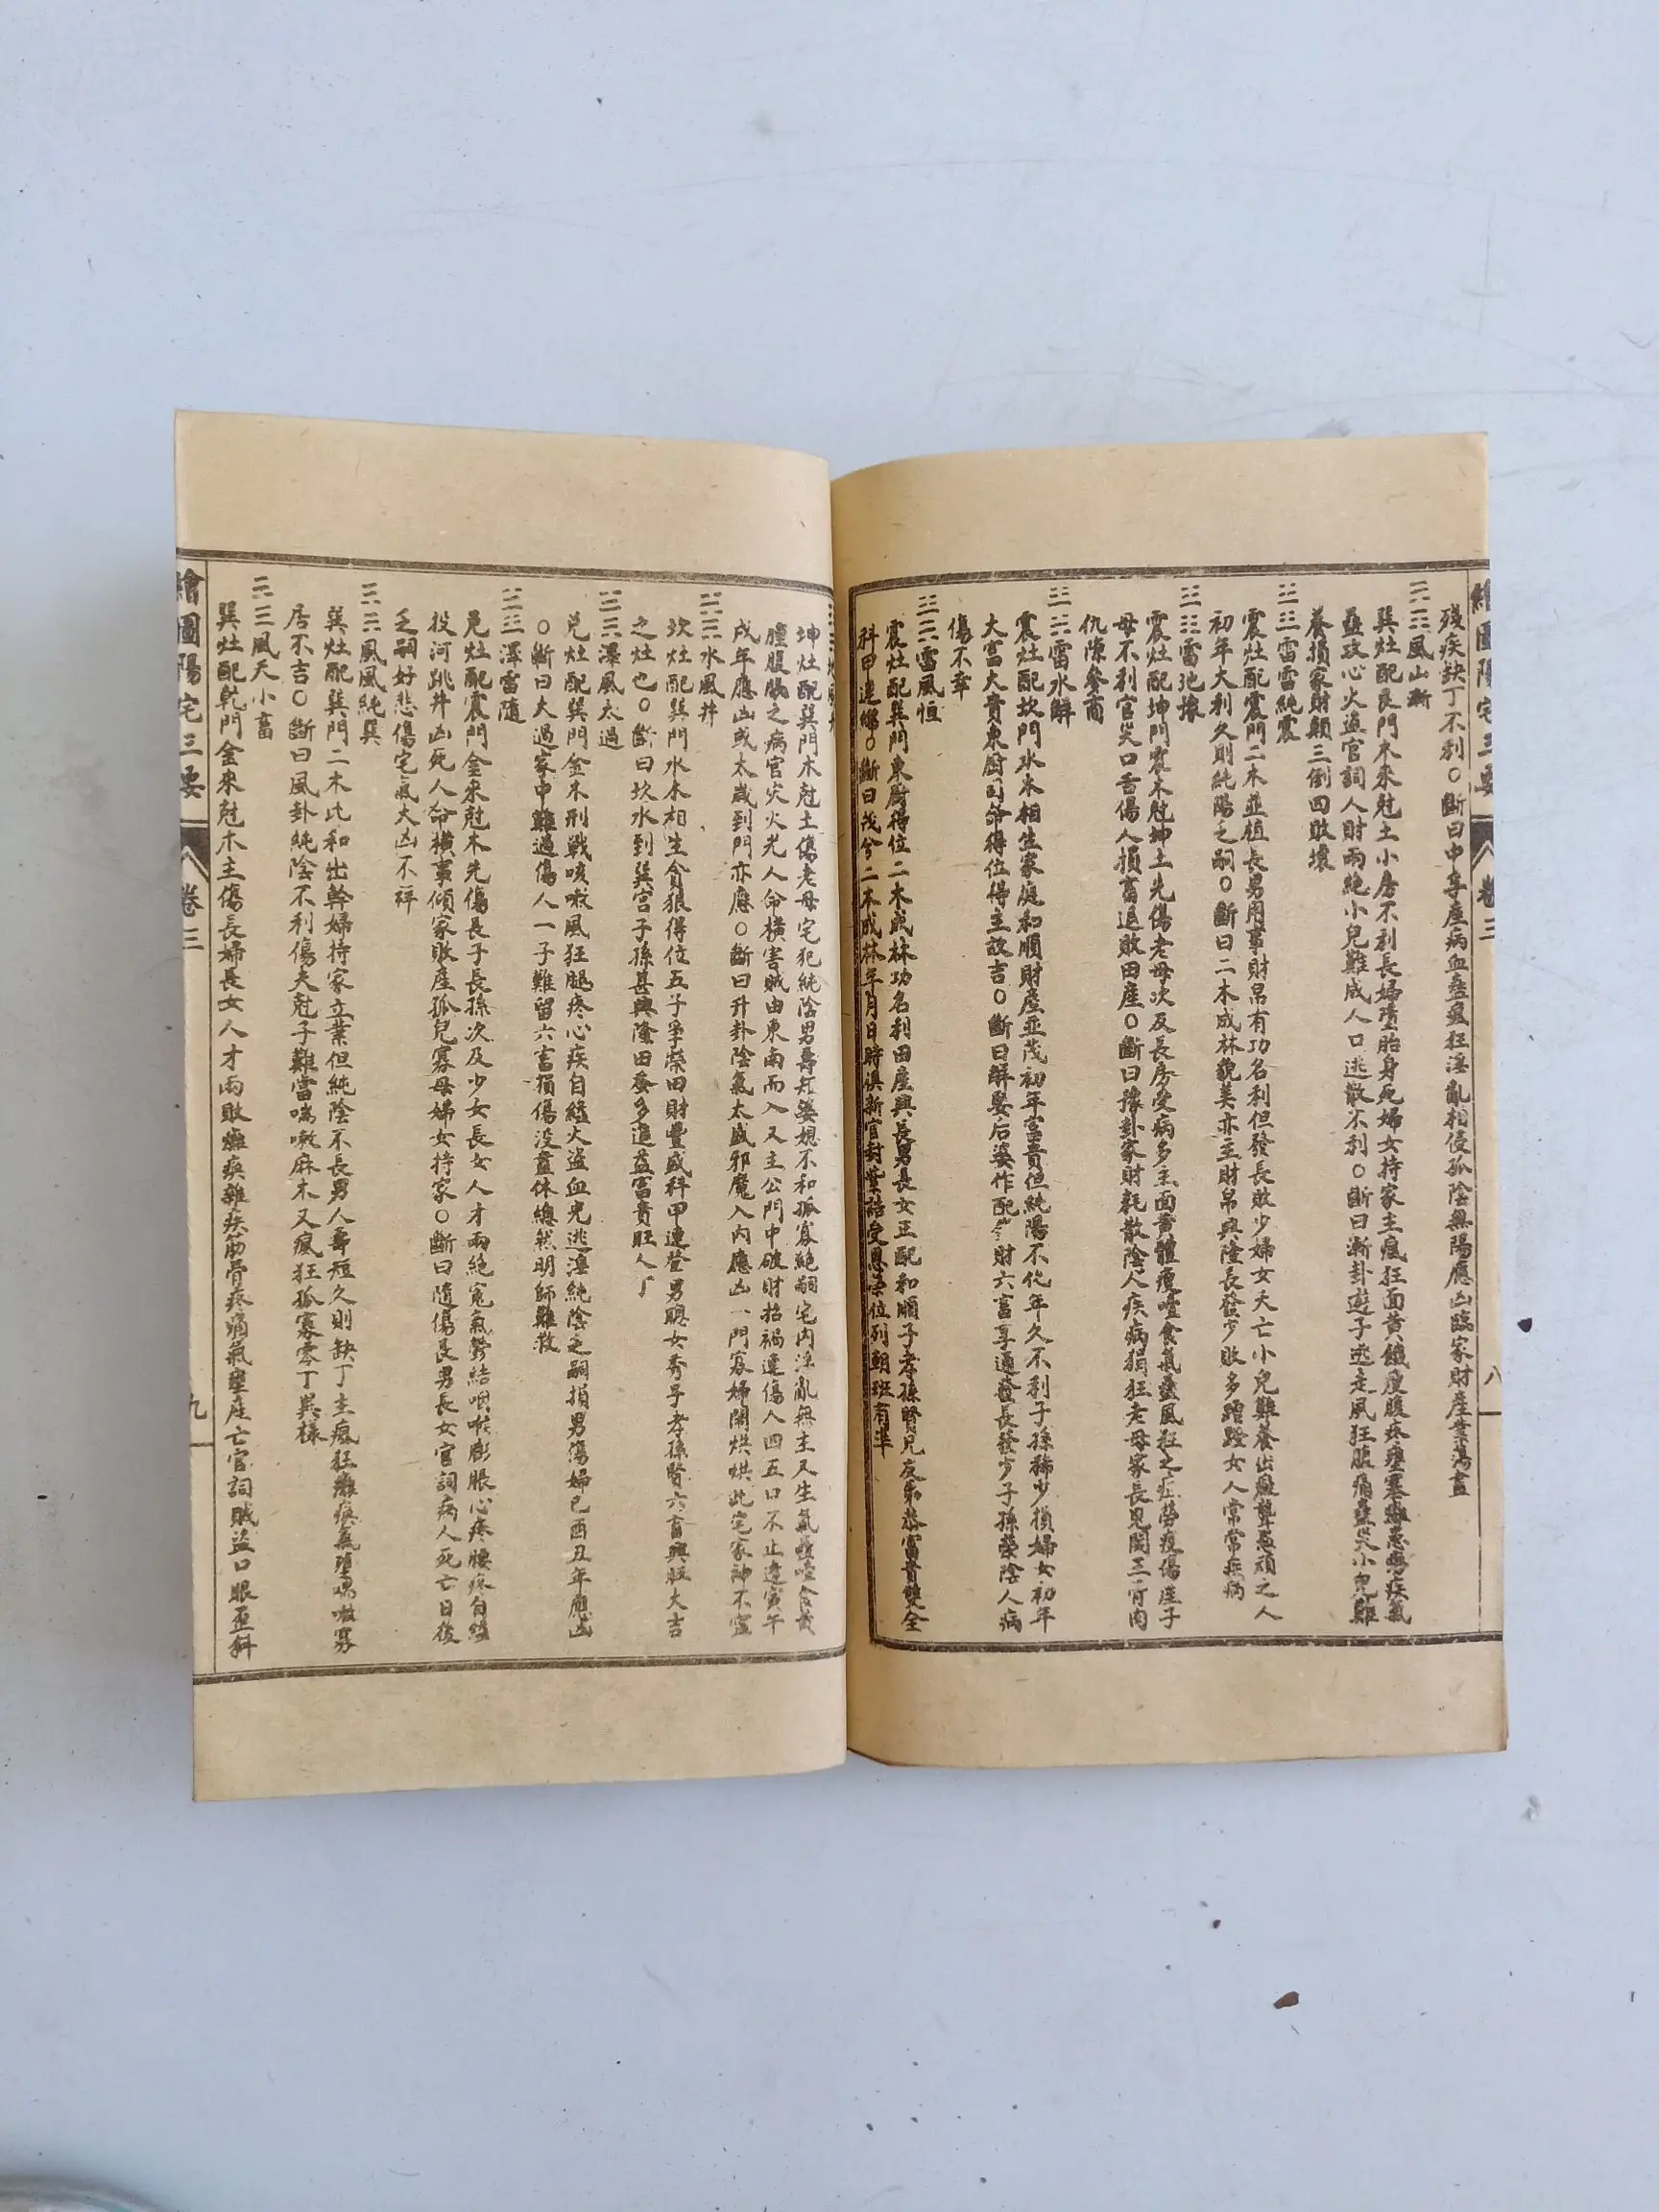 繪圖陽宅三要
卷三
八
殘疾缺丁不利〇斷曰中孚產病血蠱瘋狂淫亂相侵孤陰無陽應凶臨家財產業蕩盡
風山漸
巽灶配艮門木來尅土小房不利長婦墮胎身死婦女持家主瘋狂面黃饑瘦腹疼壅塞疾氣
蠱攻心火盜官詞人財兩絕小兒難成人口逃散不利〇斷曰漸卦遊子逃走風狂腹痛蠱災小兒難
養損家財顛三倒四敗壞
雷雷純震
震灶配震門二木並植長男用事財帛有功名利但發長敗少婦女夭亡小兒難養出癡聾愚頑之人
初年大利久則純陽乏嗣〇斷曰二木成林貌美亦主財帛興隆長發少敗多蹭蹬女人常常疾病
雷地豫
震灶配坤門震木尅坤土先傷老母次及長房受病多主面黃體瘦噎食氣蠱風狂之症勞疫傷產子
母不利官災口舌傷人損畜退敗田產〇斷曰豫卦家財耗散陰人疾病猖狂老母家長見閻王骨肉
仇隙參商
雷水解
震灶配坎門水木相生家庭和順財產並茂初年富貴但純陽不化年久不利子孫稀少損婦女初年
大富大貴東厨司命得位得主故吉〇斷曰解娶后婆作配財六畜享通發長發少子孫榮陰人病
傷不幸
雷風恒
震灶配巽門東厨得位二木成林功名利田產興長男長女正配和順子孝孫賢兄友弟恭富貴雙全
科甲連綿〇斷曰茂兮二木成林年月日時俱新官封業誥受恩榮位列朝班有準
坤灶配巽門木尅土傷老母宅犯純陰男壽短婆媳不和孤寡絕嗣宅內淫亂無主又生氣蠱噎食黃
腫腹脹之病官災火光人命橫害賊由東南而入又主公門中破財招禍連傷人四五口不止逢寅午
戌年應凶或太歲到門亦應〇斷曰升卦陰氣太盛邪魔入內應凶一門寡婦鬧烘烘此宅家神不寧
水風井
坎灶配巽門水木相生貪狼得位五子爭榮田財豐盛科甲連登男聰女秀子孝孫賢六畜興旺大吉
之灶也〇斷曰坎水到巽宮子孫甚興隆田蚕多進益富貴旺人丁
澤風大過
兌灶配巽門金木刑戰咳嗽風狂腿疼心疾自縊火盜血光逃淫純陰乏嗣損男傷婦巳酉丑年應凶
〇斷曰大過家中難過傷人一子難留六畜損傷沒盡休總然明師難救
澤雷隨
兌灶配震門金來尅木先傷長子長孫次及少女長女人才兩絕寃氣欝結咽喉膨脹心疼腰疼自縊
投河跳井凶死人命橫事傾家敗產孤兒寡母婦女持家〇斷曰隨傷長男長女官詞病人死亡日後
乏嗣好悲傷宅氣大凶不祥
風風純巽
巽灶配巽門二木比和出幹婦持家立業但純陰不長男人壽短久則缺丁主瘋狂癱瘓氣壅喘嗽寡
居不吉〇斷曰風卦純陰不利傷夫尅子難當喘嗽麻木又瘋狂孤寡零丁異樣
風天小畜
巽灶配乾門金來尅木主傷長婦長女人才兩敗癱瘓雜疾筋骨疼痛氣壅產亡官詞賊盜口眼歪斜
繪圖陽宅三要
卷三
九